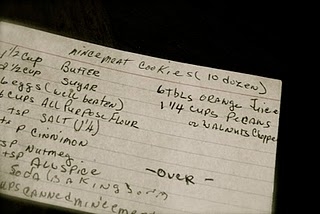 mincemeat cookies (10 dozen)
1/2 cup Butter
1/2 cup Sugar
6 eggs (well beaten)
6 cups All Purpose Flour
tsp Salt (1/4)
P Cinnimon
sp Nutmeg
tsp Allspice
Soda
ups canned mincemea
6 tbls orange Juice
1 1/4 cups Pecans
or Walnuts Choppe
-OVER-